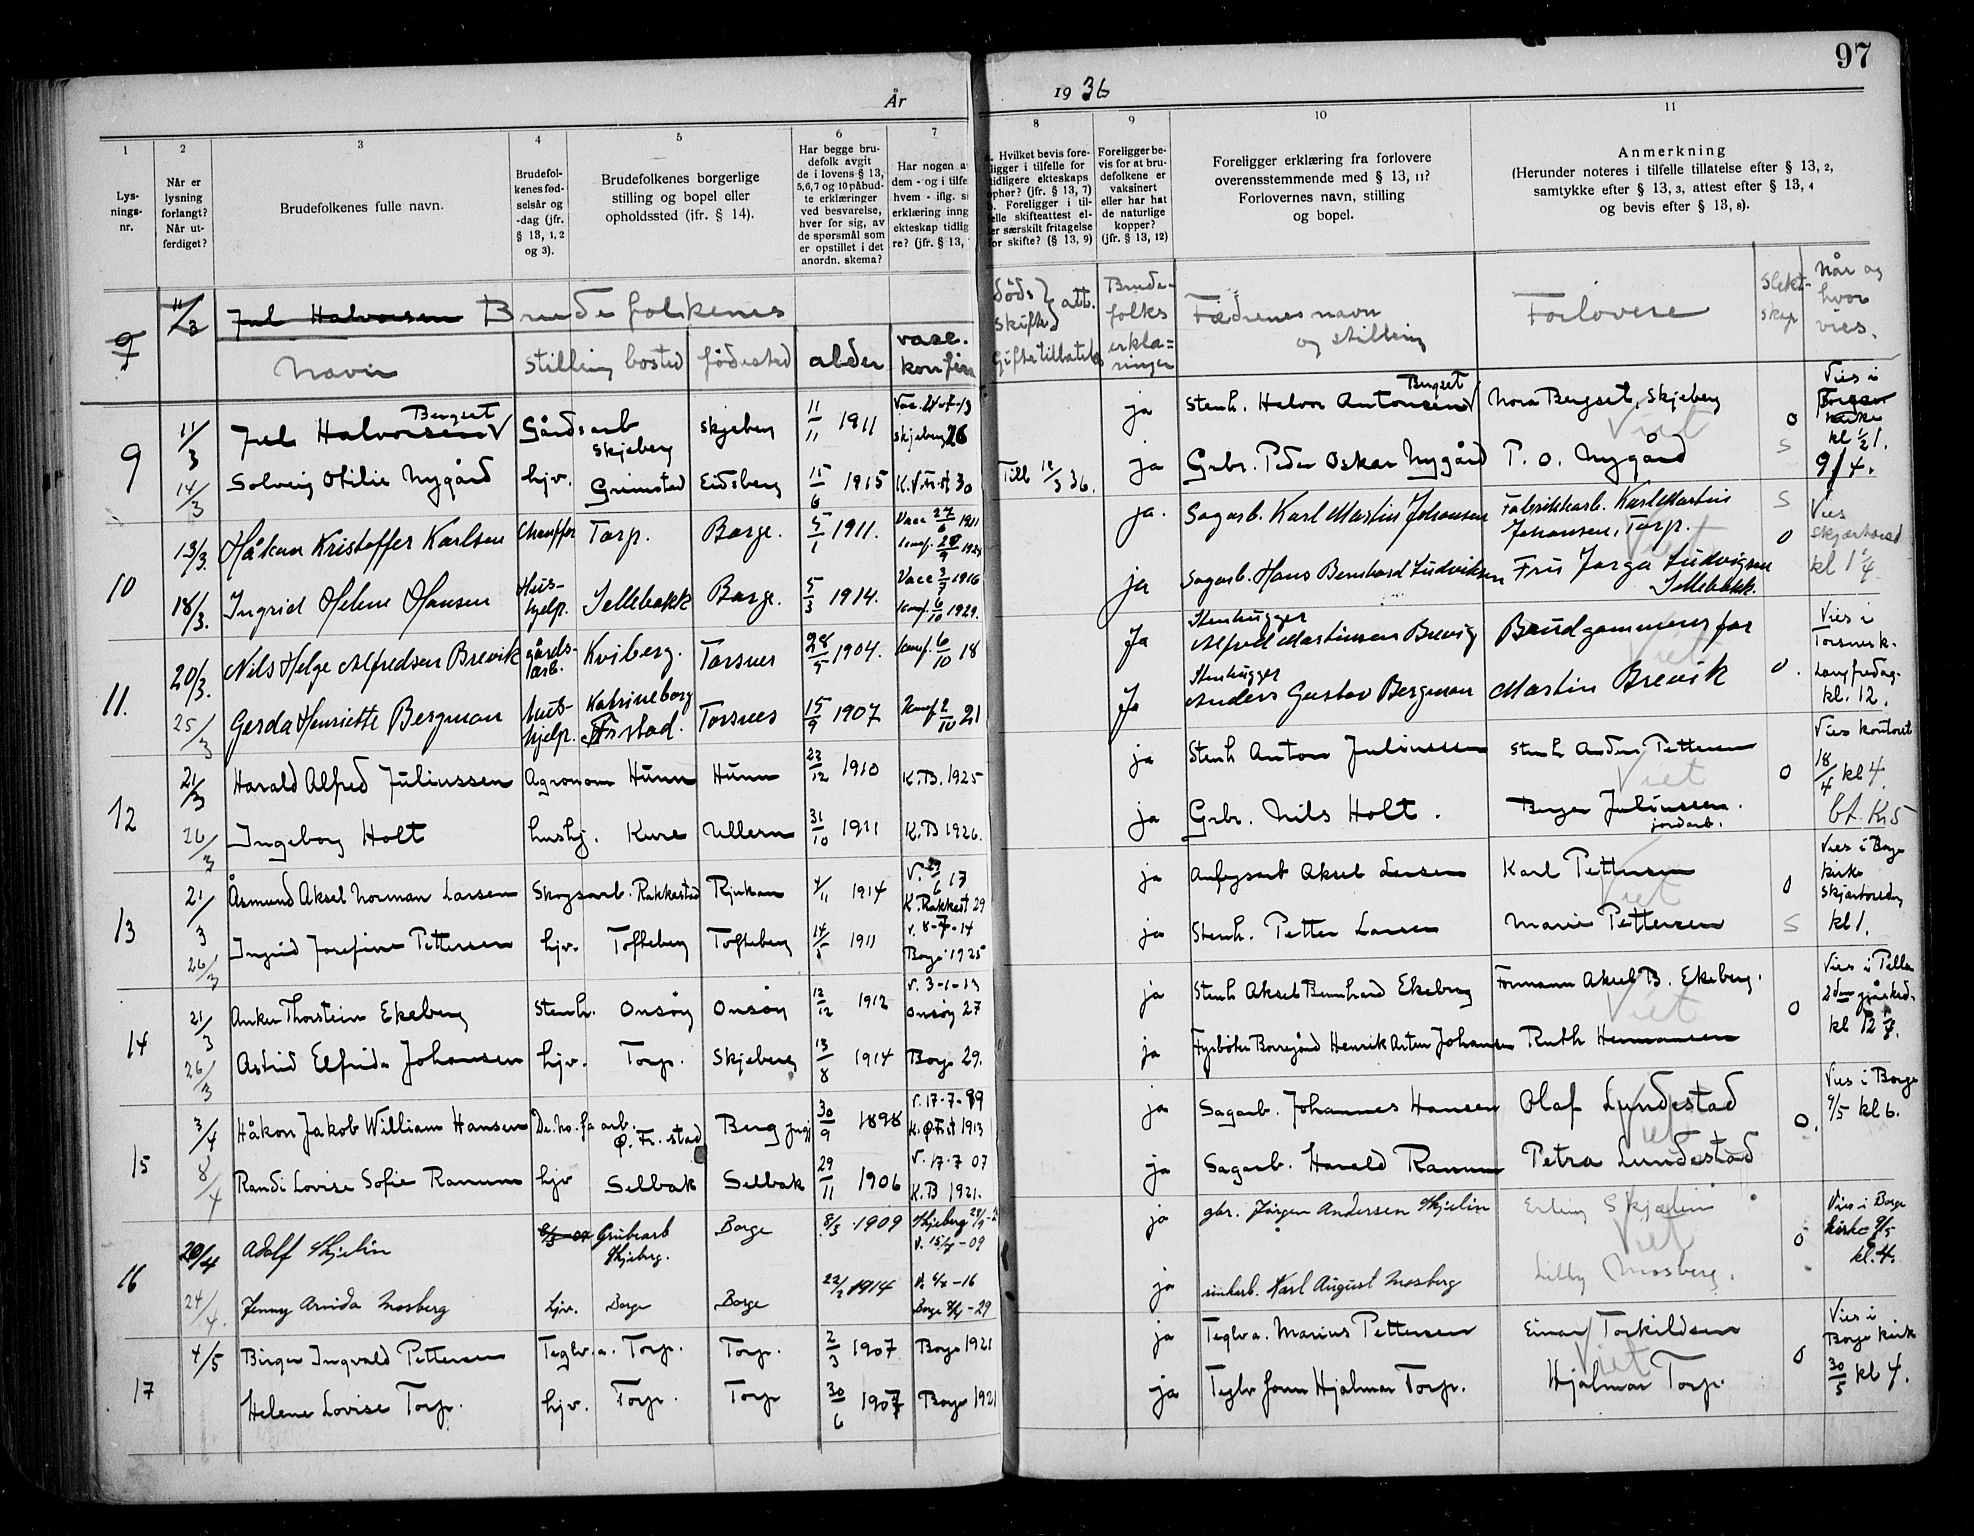 97
År 1936
1 2 3 4 5 6 7 8 9 10 11
Lys-
nings-
nr.
Når er
lysning
forlangt?
Når ut-
ferdiget?
Brudefolkenes fulle navn.
Brudefol-
kenes fød-
selsår og
-dag (jfr.
§ 13, 1, 2
og 3).
Brudefolkenes borgerlige
stilling og bopel eller
opholdssted (ifr. § 14).
Har begge bru-
defolk avgit
de i lovens § 13,
5,6,7 og 10 påbud-
te erklæringer
ved besvarelse,
hver for sig, av
de spørsmål som
er opstillet i det
anordn. skema?
Har nogen a
dem - og i tilfe
hvem - iflg. si
erklæring inng
ekteskap tidlig
re? (jfr. § 13,
. Hvilket bevis fore-
ligger i tilfelle for
tidligere ekteskaps
ophør? (jfr. § 13, 7)
. Foreligger i til-
elle skifteattest el-
er særskilt fritagelse
for skifte? (§ 13, 9)
Foreligger be-
vis for at bru-
defolkene er
vaksinert
eller har hat
de naturlige
kopper?
(jfr. § 13, 12)
Foreligger erklæring fra forlovere
overensstemmende med § 13, 11?
Forlovernes navn, stilling
og bopel.
Anmerkning
(Herunder noteres i tilfelle tillatelse efter § 13, 2,
samtykke efter § 13, 3, attest efter § 13, 4
og bevis efter § 13, 8).
9 11/3 Jul Halvorsen Brudefolkenes
Navn stilling bosted fødested alder vacc. konfirm
Døds Skifte } att. Giftetillatelse
Brude-
folks
erklæ=
ringer
Fædrenes navn
og stilling
Forlovere
Slekt-
skap
Når og
hvor
vies.
9 11/3 Jul Halvorsen Bergset Gårdsarb Skjeberg Skjeberg 11/11 1911 Skjeberg 26 ja Stenh. Helvor Antonsen Bergset Nora Bergset, Skjeberg Viet 0 Vies i kirke kl 1/2 1.
14/3 Solveig Otilie Nygård hjv. Grimstad Eidsberg 15/6 1915 30 Till 12/3 36. ja Grbr. Peder Oskar Nygård P. O. Nygård S 9/4.
10 13/3. Håkon Kristoffer Karlsen Chauffør Torp. Borge. 5/1 1911. Vacc 27/6 1911 ja. Sagarb. Karl Martin Johansen Fabrikkarb. Karl Martin Johansen, Torp. S Vies Skjærtorsd
18/3. Ingrid Helene Hansen Hus-hjelp. Sellebakk Borge. 5/3 1914. Vacc 3/7 1916 Konf. 6/10 1929. ja Sagarb. Hans Bernhard Ludviksen Fru Jorga Ludvigsen Sellebakk. Viet 0 kl 1 1/4
11. 20/3. Nils Helge Alfredsen Brevik gårds-arb. Kviberg. Torsnes 28/5 1904. Konf. 6/10 18 Ja Stenhugger Alfred Martinsen Brevig Brudgommens far Viet 0. Vies i Torsnesk. Langfredag.
25/3 Gerda Henriette Bergman Hus-hjelp. Katrineborg Frstad. Torsnes 15/9 1907 Konf 2/10 21 Ja Stenhugger Anders Gustav Bergman Martin Brevik kl. 12.
12 21/3 Harald Alfred Juliussen Agronom Hunn Hunn 22/12 1910 K.B. 1925 ja Stenh Anton Juliussen Stenh Anders Pettersen Viet 0 Vies kontoret 18/4 kl 4.
26/3 Ingeborg Holt hushj. Kure Ullern 31/10 1911 K.B 1926. ja Grbr. Nils Holt. Birger Juliussen. jordarb. bt. Kr 5
13 21/3 Åsmund Aksel Norman Larsen Skogsarb. Rakkestad Rjukan 4/11 1914 K. Rakkest 29 ja Anlegsarb Aksel Larsen Karl Pettersen Viet 0 Vies i Borge kirke Skjærtorsdag
26/3 Ingrid Josefine Pettersen hjv. Tofteberg Tofteberg 14/5 1911 v. 8-7-14 Borge 1925 ja Stenh. Petter Larsen Marie Pettersen S kl 1.
14 21/3 Anker Thorstein Ekeberg Stenh. Onsøy Onsøy 12/12 1912 v. 3-1-13 Onsøy 27 ja Stenh Aksel Bernhard Ekeberg Formann Aksel B. Ekeberg. Viet 0 Vies i 2den påsked.
26/3 Astrid Elfrida Johansen hjv. Torp. Skjeberg 13/8 1914 Borge 29. ja Fyrbøter Borregård Henrik Anton Johansen Ruth Hermansen
15 3/4 Håkon Jakob William Hansen De.no.fa arb. Ø. Fr. stad Berg 30/9 1898 v. 17-7-99 K. Ø Fr.st 1913 ja Sagarb. Johannes Hansen Olaf Lundestad Viet 0. Vies i Borge 9/5 kl 6.
8/4 Randi Lovise Sofie Ranum hjv Selbak Selbak 29/11 1906 v. 17-7 07 K.B 1921. ja Sagarb. Harald Ranum Petra Lundestad
16 20/4 Adolf Skjelin Grubearb Skjeberg. Borge 8/3 1909 Skjeberg v. 15/7-09 ja gbr. Jørgen Andersen Skjelin Erling Skjelin Viet 0 Vies i Borge kirke 9/5 kl. 4.
24/4. Jenny Arvida Mosberg hjv. Borge Borge 22/2 1914 ja Karl August Mosberg Lilly Mosberg.
17 4/5 Birger Ingvald Pettersen Teglv.a. Torp. Torp. 2/3 1907 Borge 1921 ja Teglv a. Marius Pettersen Einar Torkildsen Viet 0 Vies i Borge kirk 30/5 kl 4.
Helene Lovise Torp. hjv. Torp. Torp 30/6 1907 Borge 1921 ja Teglv form Hjalmar Torp. Hjalmar Torp.